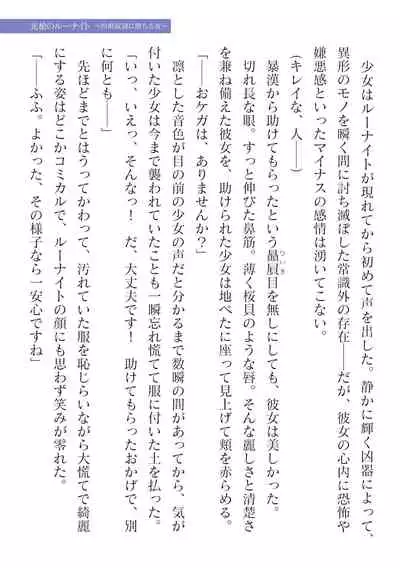 光槍のルーナイト
少女はルーナイトが現れてから初めて声を出した。静かに輝く凶器によって、
異形のモノを瞬く間に討ち滅ぼした常識外の存在――だが、彼女の心内に恐怖や
嫌悪感といったマイナスの感情は湧いてこない。
(キレイな、人――)
暴漢から助けてもらったという贔屓目を無しにしても、彼女は美しかった。
ついき
切れ長な眼。すっと伸びた鼻筋。薄く桜貝のような唇。そんな麗しさと清楚さ
を兼ね備えた彼女を、助けられた少女は地べたに座って見上げて頬を赤らめる。
「――おケガは、ありませんか?」
凛とした音色が目の前の少女の声だと分かるまで数瞬の間があってから、気が
付いた少女は今まで襲われていたことも一瞬忘れ慌てて服に付いた土を払った。
「いっ、いえっ、そんなっ! だ、大丈夫です! 助けてもらったおかげで、別
に何とも――」
先ほどまでとはうってかわって、汚れていた服を恥じらいながら大慌てで綺麗
にする姿はどこかコミカルで、ルーナイトの顔にも思わず笑みが零れた。
「――ふふ。よかった、その様子なら一安心ですね」